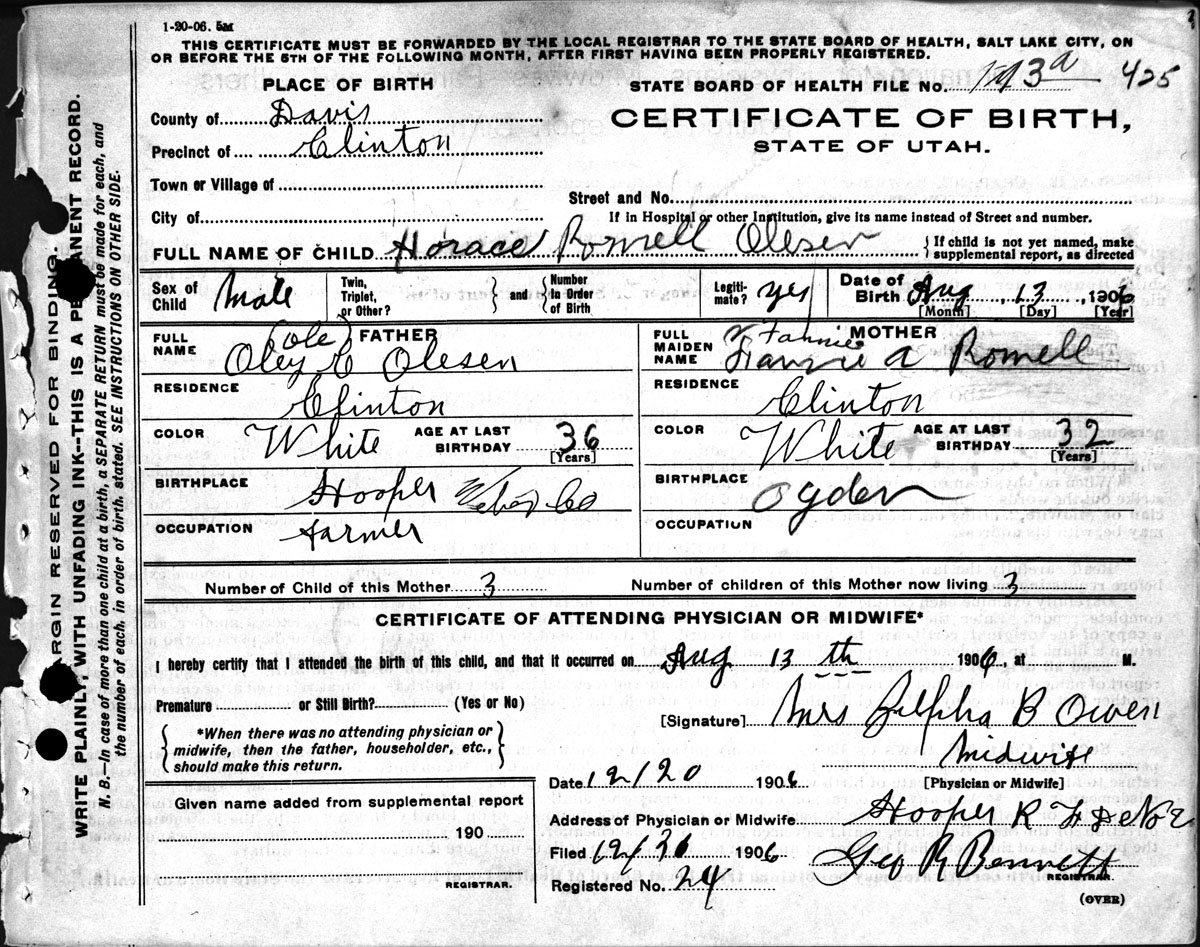 1-20-06. 5M
THIS CERTIFICATE MUST BE FORWARDED BY THE LOCAL REGISTRAR TO THE STATE BOARD OF HEALTH, SALT LAKE CITY, ON
OR BEFORE THE 5TH OF THE FOLLOWING MONTH, AFTER FIRST HAVING BEEN PROPERLY REGISTERED.
PLACE OF BIRTH
STATE BOARD OF HEALTH FILE No. 425
County of Davis
CERTIFICATE OF BIRTH,
Precinct of Clinton
STATE OF UTAH.
Town or Village of
Street and No.
City of
If in Hospital or other Institution, give its name instead of Street and number.
FULL NAME OF CHILD Horace Rowell Olesen { If child is not yet named, make
supplemental report, as directed
Sex of Child Male Twin, Triplet, or Other? and Number in Order of Birth Legiti-mate? yes Date of Birth Aug 13 1906
[Month] [Day] [Year]
FATHER
FULL NAME (Ole) Oley C Olesen
MOTHER
FULL MAIDEN NAME Fannie A Rowell
Fannie
RESIDENCE Clinton
RESIDENCE Clinton
COLOR White AGE AT LAST BIRTHDAY 36 [Years]
COLOR White AGE AT LAST BIRTHDAY 32 [Years]
BIRTHPLACE Hooper Weber Co
BIRTHPLACE Ogden
OCCUPATION Farmer
OCCUPATION
Number of Child of this Mother 3 Number of children of this Mother now living 3
CERTIFICATE OF ATTENDING PHYSICIAN OR MIDWIFE*
I hereby certify that I attended the birth of this child, and that it occurred on Aug 13th 1906, at M.
Premature or Still Birth? (Yes or No)
[Signature] Mrs Zilpha B Owen
Midwife
[Physician or Midwife]
*When there was no attending physician or
midwife, then the father, householder, etc.,
should make this return.
Date 12/20 1906
Given name added from supplemental report
190
REGISTRAR.
Address of Physician or Midwife Hooper R F D No 2
Filed 12/31 1906 Geo R Bennett
REGISTRAR.
Registered No. 24
(OVER)
MARGIN RESERVED FOR BINDING.
WRITE PLAINLY, WITH UNFADING INK--THIS IS A PERMANENT RECORD.
N. B.--In case of more than one child at birth, a SEPARATE RETURN must be made for each, and
the number of each, in order of birth, stated. SEE INSTRUCTIONS ON OTHER SIDE.